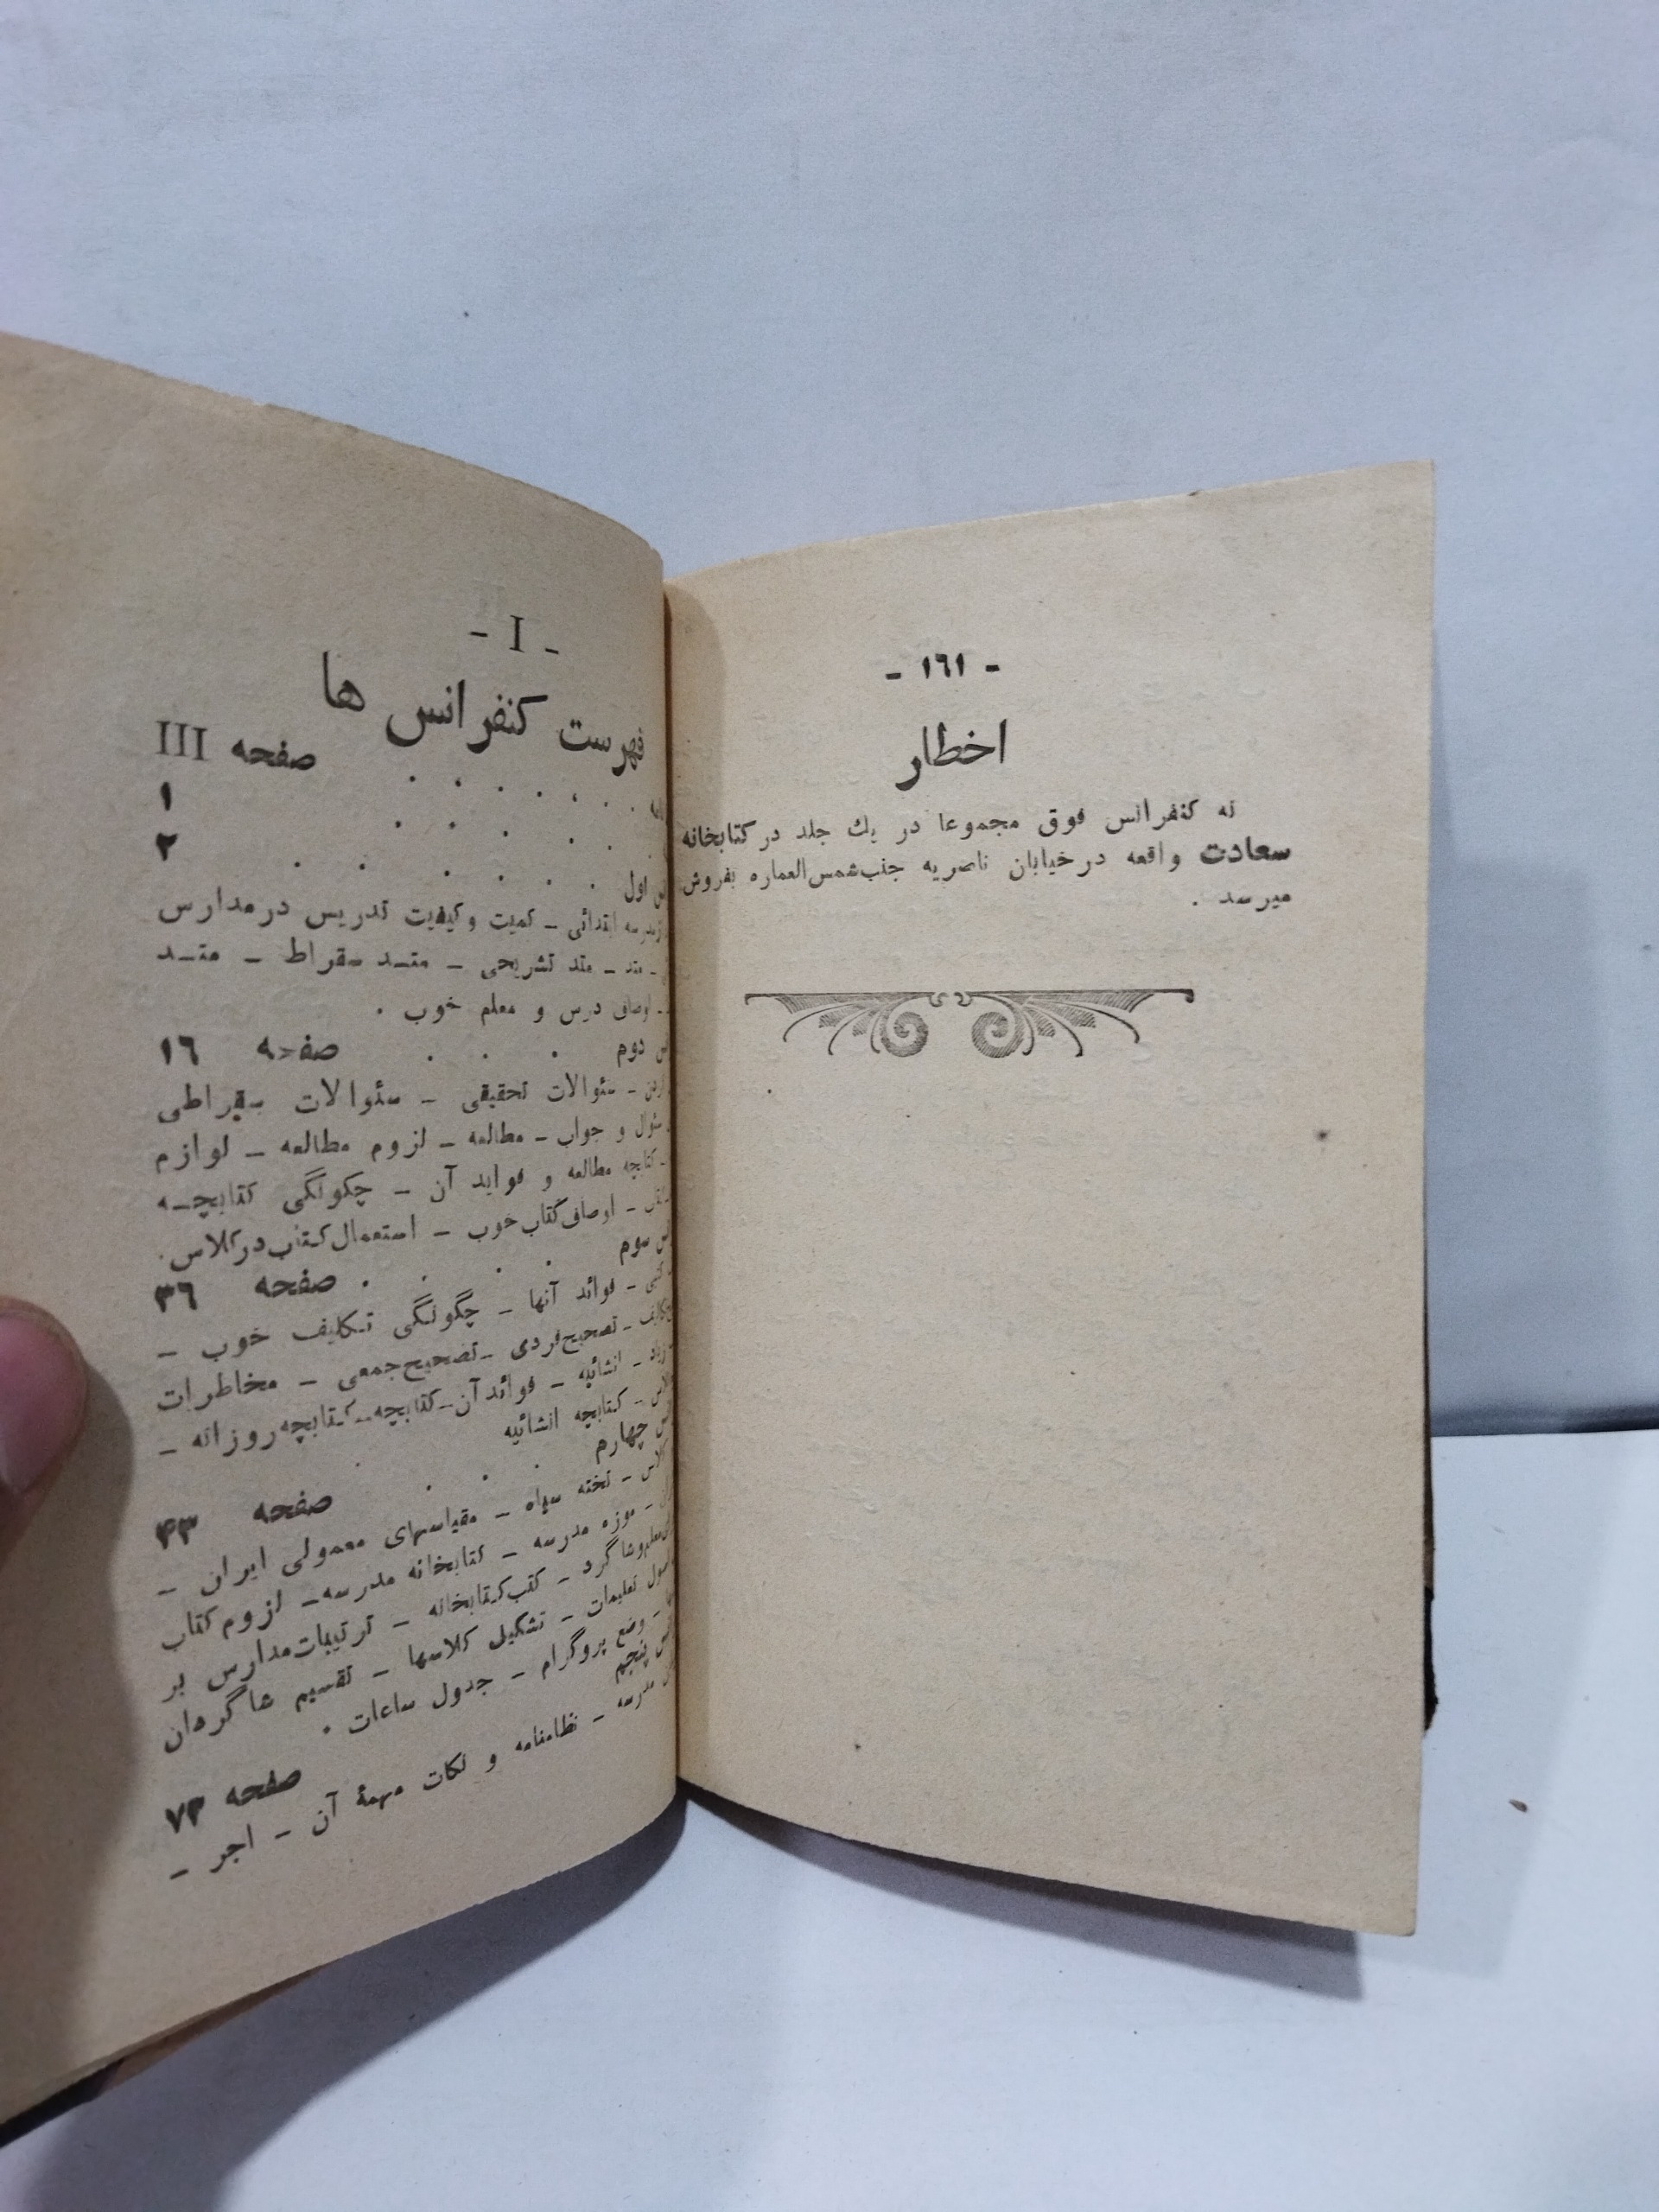 - ١٦١ -
اخطار
نه کنفرانس فوق مجموعا در یك جلد در کتابخانه
سعادت واقعه در خیابان ناصریه جنب شمس‌العماره بفروش
میرسد .
- I -
فهرست کنفرانس ها
صفحه III
۱
۲
اول
مدرسه ابتدائی – کمیت و کیفیت تدریس در مدارس
– متد – متد تشریحی – متـد سقراط – متـد
– اوصاف درس و معلم خوب .
دوم . . . صفحه ١٦
– سئوالات تحقیقی – سئوالات سقراطی
سئوال و جواب – مطالعه – لزوم مطالعه – لوازم
– کتابچه مطالعه و فواید آن – چگونگی کتابچـه
– اوصاف کتاب خوب – استعمال کتاب در کلاس .
سوم . . . . صفحه ٣٦
– فوائد آنها – چگونگی تکلیف خوب –
– تصحیح فردی – تصحیح جمعی – مخاطرات
– انشائیه – فوائد آن – کتابچه – کتابچه روزانه –
– کتابچه انشائیه
چهارم . . . صفحه ۴۳
– تخته سیاه – مقیاسهای معمولی ایران –
– موزه مدرسه – کتابخانه مدرسه – لزوم کتاب
معلم و شاگرد – کتب کتابخانه – ترتیبات مدارس بر
تعلیمات – تشکیل کلاسها – تقسیم شاگردان
– وضع پروگرام – جدول ساعات .
پنجم صفحه ۷۳
مدرسه – نظامنامه و نکات مهمهٔ آن – اجر –